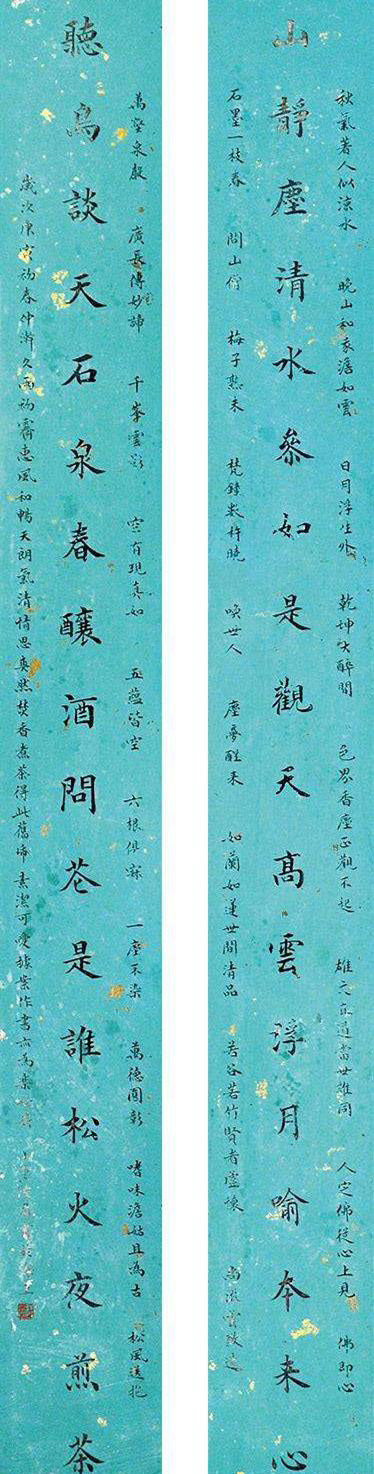 秋氣著人似涼水 晚山和我澹如雲 日月浮生外 乾坤大醉間 色界香塵正觀不起 雄文直道當世誰同 人定佛從心上見 佛即心
山靜塵清水參如是觀天高雲浮月喻本来心
石墨一枝春 問山僧 梅子熟未 梵鐘數杵曉 喚世人 塵夢醒来 如蘭如蓮世間清品 若谷若竹賢者虛懷
萬壑泉聲 廣長傳妙諦 千峯雲影 空有現真如 五蘊皆空 六根俱寂 一塵不染 萬德圓彰 嗜味澹姑且為古 松風送抱
聽鳥談天石泉春釀酒問花是誰松火夜煎茶
歲次庚寅初春仲澣久雨初霽惠風和暢天朗氣清情思奐然焚香煮茶得此舊紙素潔可愛據案作書亦為樂